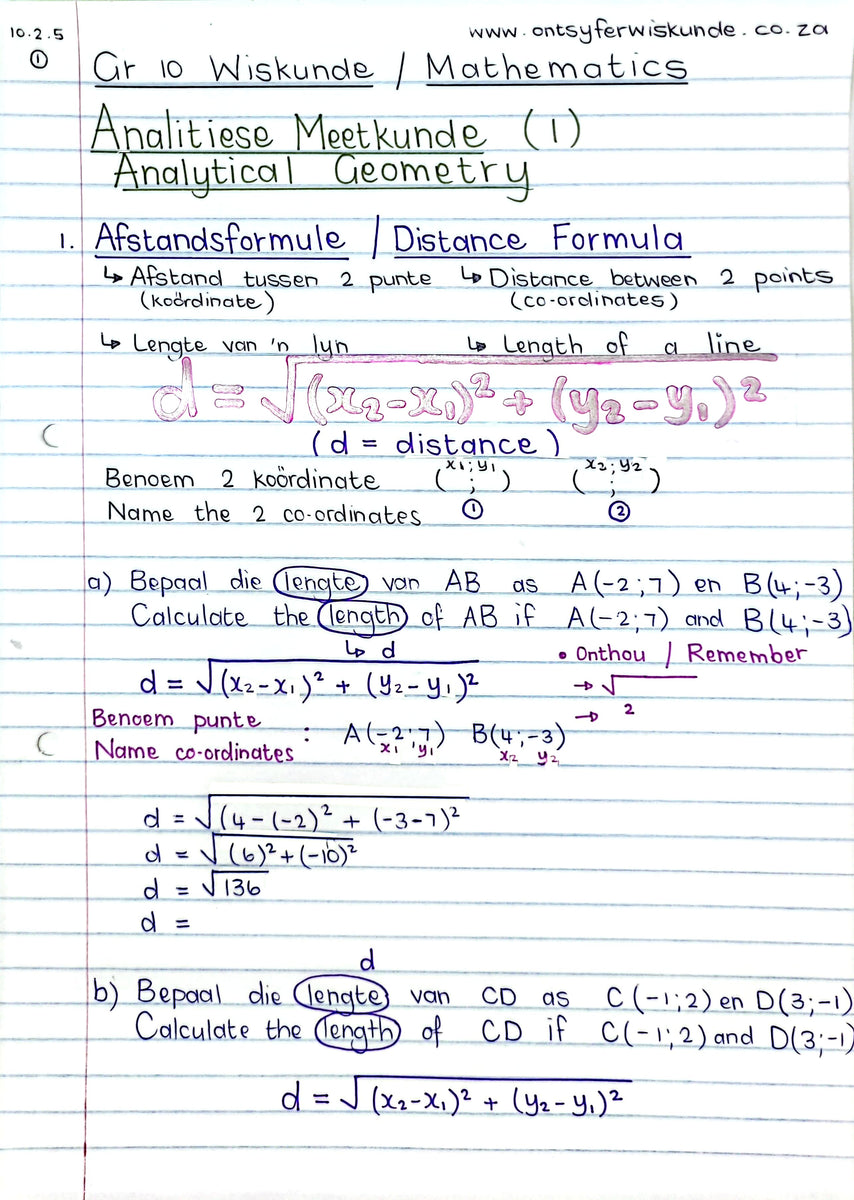 10.2.5
①
www.ontsyferwiskunde.co.za
Gr 10 Wiskunde / Mathematics
Analitiese Meetkunde (1)
Analytical Geometry
1. Afstandsformule / Distance Formula
↳ Afstand tussen 2 punte ↳ Distance between 2 points
(koördinate) (co-ordinates)
↳ Lengte van 'n lyn ↳ Length of a line
d = √(x₂-x₁)² + (y₂-y₁)²
(d = distance)
x₁;y₁ x₂;y₂
Benoem 2 koördinate ( ; ) ( ; )
Name the 2 co-ordinates ① ②
a) Bepaal die lengte van AB as A(-2;7) en B(4;-3)
Calculate the length of AB if A(-2;7) and B(4;-3)
↳ d • Onthou / Remember
d = √(x₂-x₁)² + (y₂-y₁)² → √
Benoem punte → 2
Name co-ordinates : A(-2;7) B(4;-3)
x₁ y₁ x₂ y₂
d = √(4-(-2)² + (-3-7)²
d = √(6)²+(-10)²
d = √136
d =
d
b) Bepaal die lengte van CD as C(-1;2) en D(3;-1)
Calculate the length of CD if C(-1;2) and D(3;-1)
d = √(x₂-x₁)² + (y₂-y₁)²